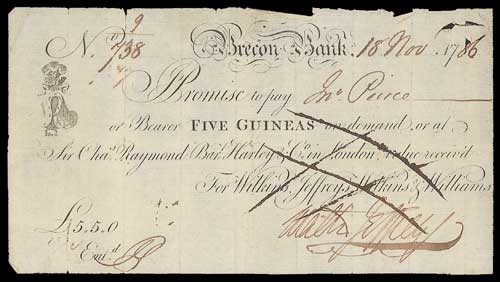 9
No. 738 Brecon Bank. 18 Nov. 1786
I Promise to pay Jno. Peirce
or Bearer FIVE GUINEAS on demand, or at
Sir Chas. Raymond Bart. Harley & Co. in London, value receiv'd
For Wilkins, Jeffreys, Wilkins & Williams
£5.5.0
Entd.